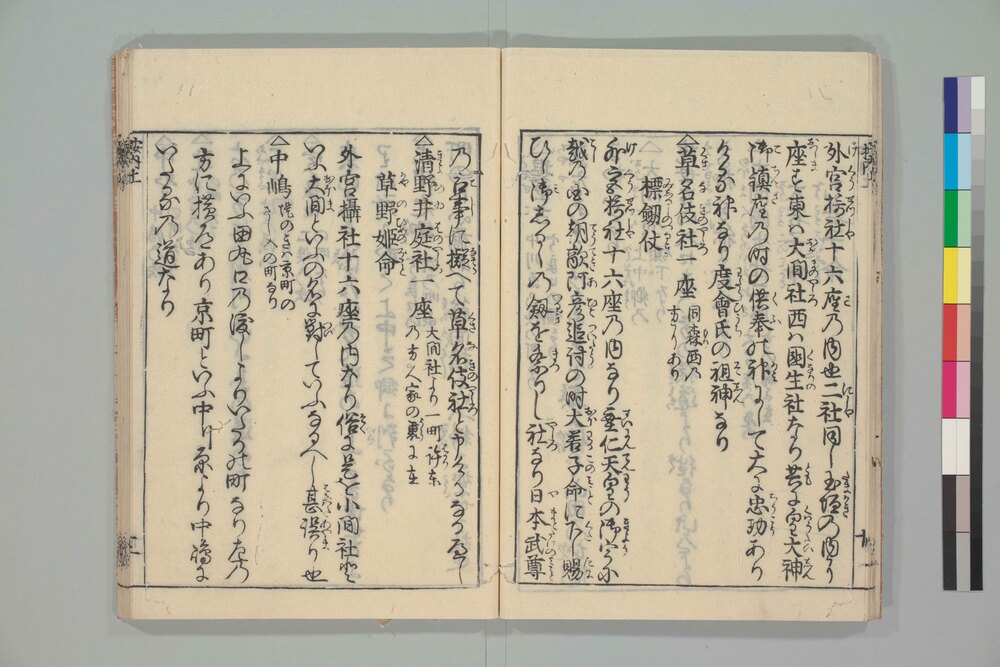 外宮摂社十六座乃内也二社同し玉垣の内に
座す東ハ大間社西ハ国生社なり共に皇大神
御鎮座乃時の供奉の神にして大に忠功あり
ける神なり度會氏の祖神なり
△草名伎社一座 同森西乃方にあり
標劔仗
外宮摂社十六座乃内なり垂仁天皇の御宇に
越乃国の朝敵阿彦追討の時大若子命にた賜
ひし御しるしの劔を祭りし社なり日本武尊
乃古事に擬へて草名伎社と申けるなるへし
△清野井庭社一座 大間社より一町許東乃方人家の裏に在
草野姫命
外宮攝社十六座乃内なり俗に是を小間社と
いふ大間といふの名に對していふなるへし甚誤り也
△中嶋 堤のきハ京町のさし入の町なり
上にいふ田丸口乃渡しよりいたる町なり左乃
方に横道あり京町といふ中川原より中嶋に
いたる乃道なり